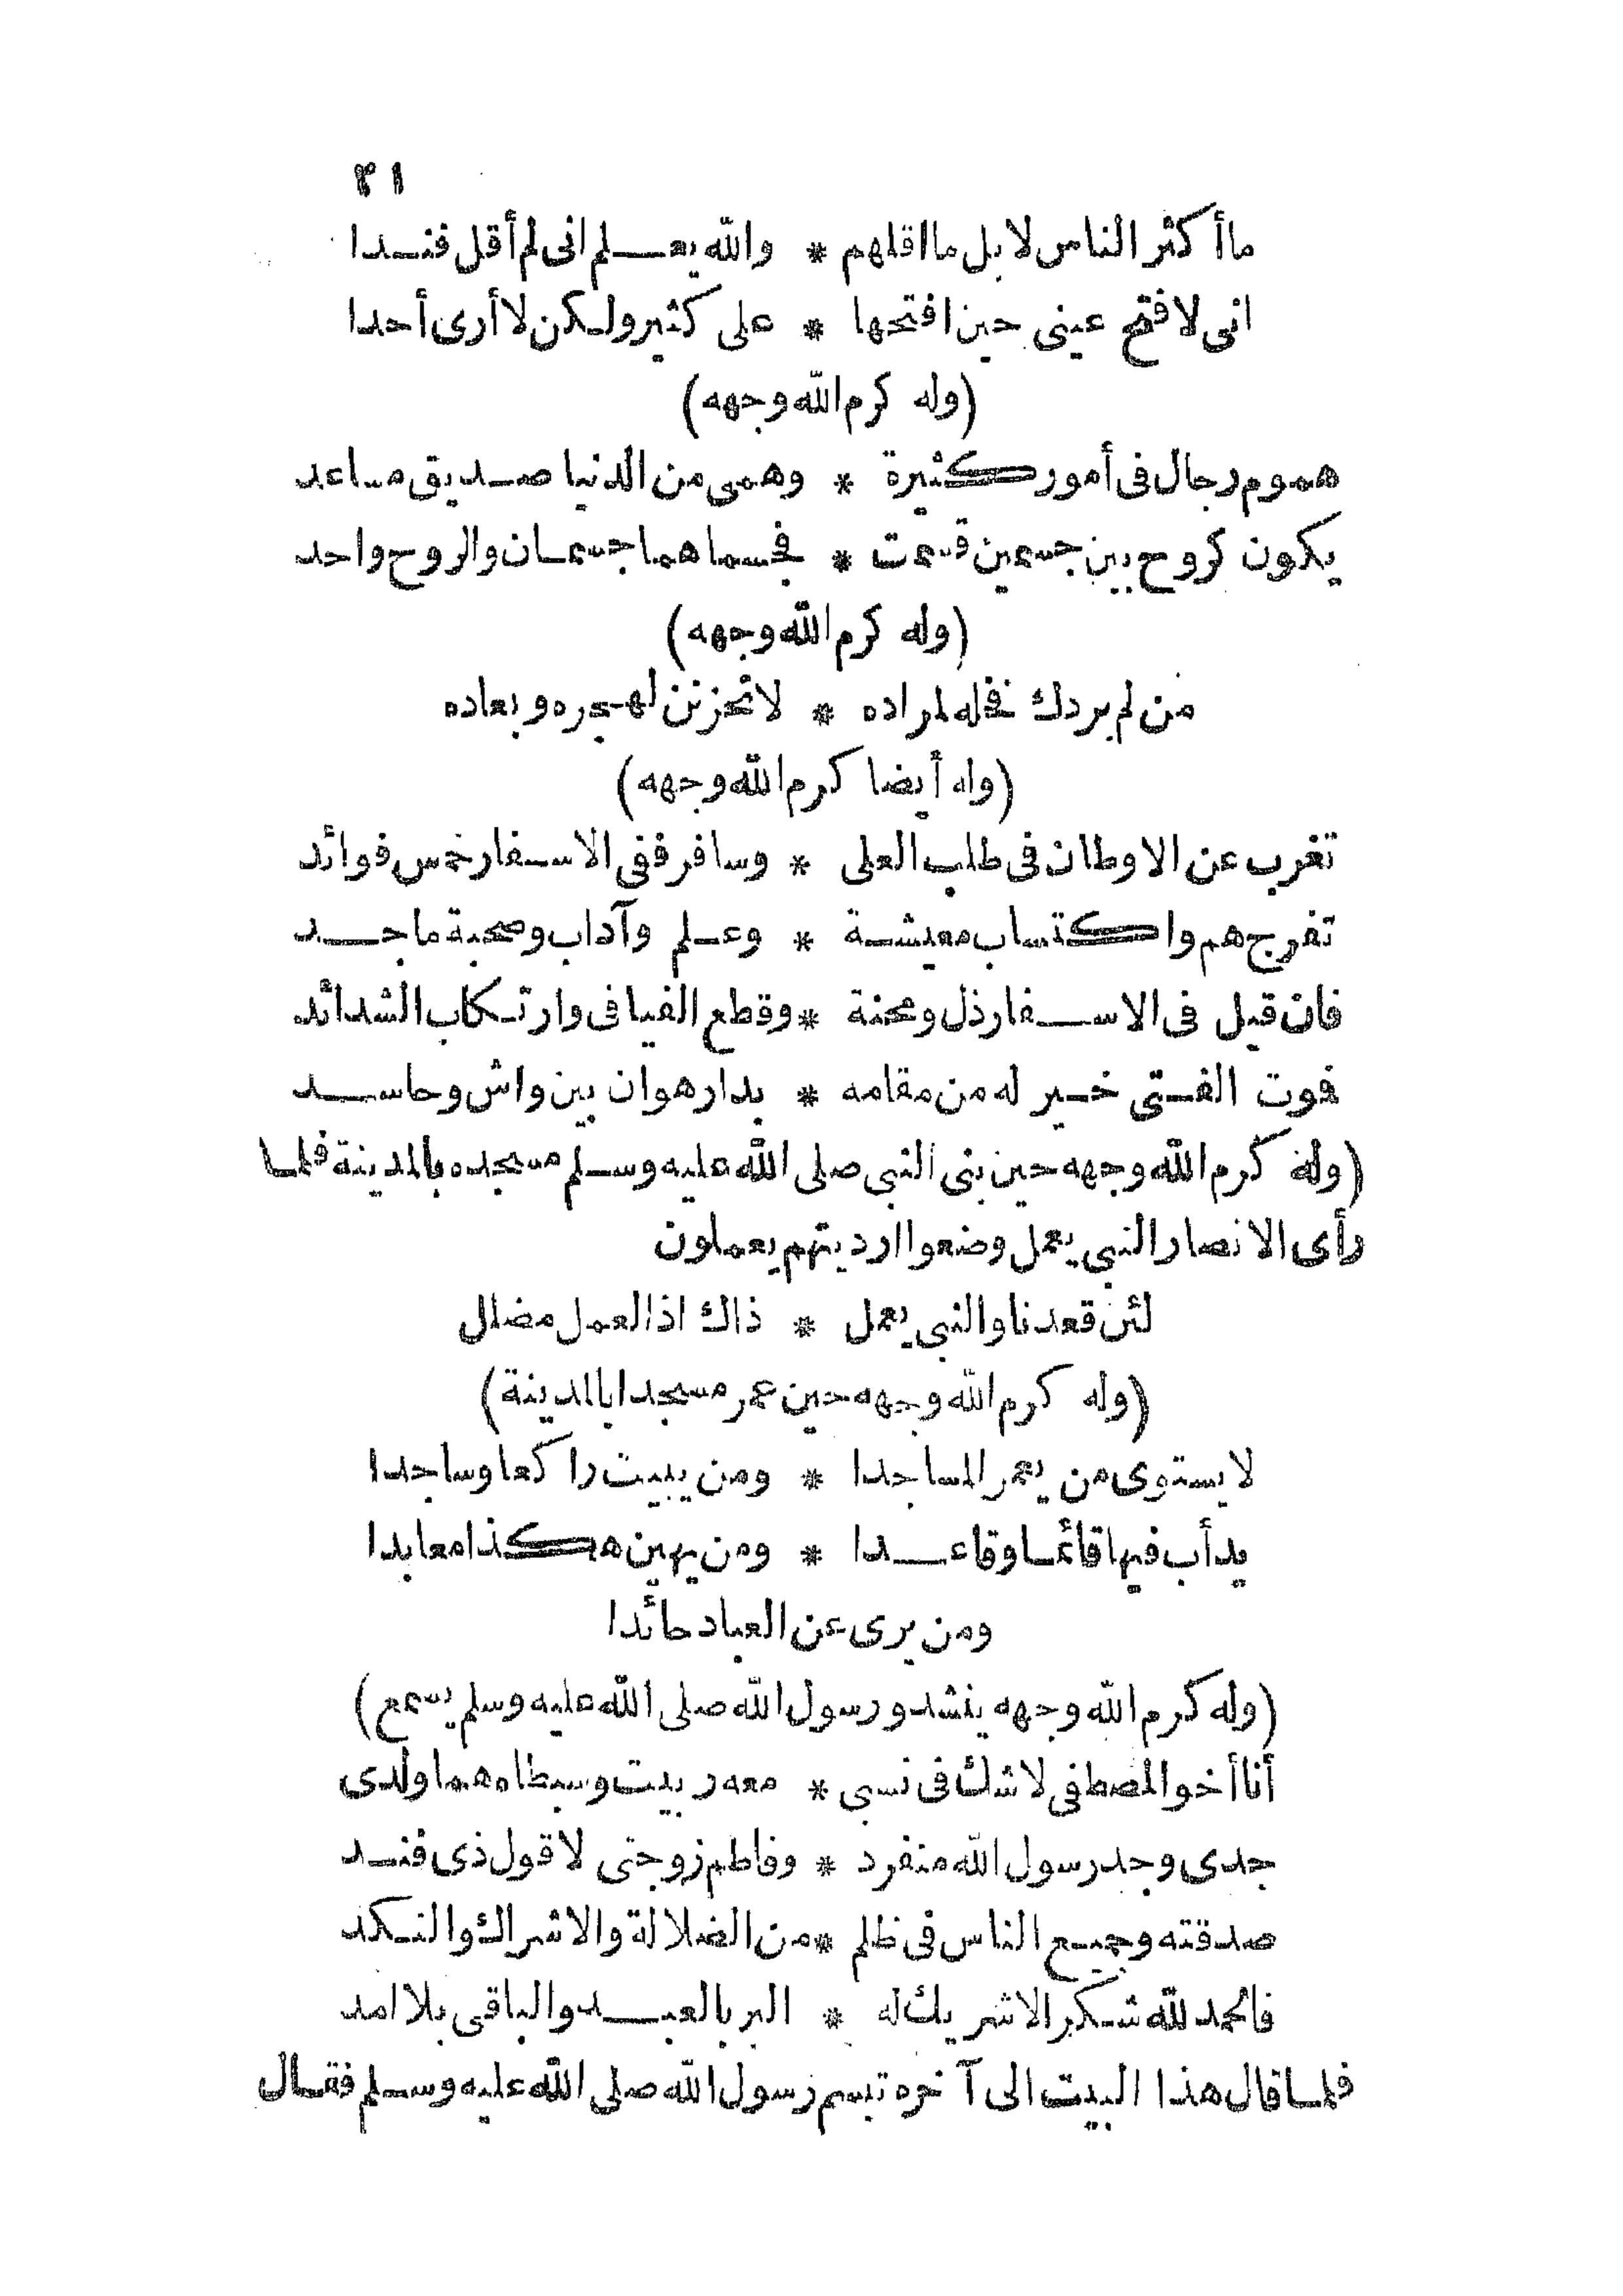 ٣١
ما أكثر الناس لا بل ما اقلهم * والله يعلم انى لم أقل فندا
انى لافتح عينى حين افتحها * على كثير ولكن لا أرى أحدا
(وله كرم الله وجهه)
هموم رجال فى أمور كثيرة * وهمى من الدنيا صديق مساعد
يكون كروح بين جسمين قسمت * فجسماهما جسمان والروح واحد
(وله كرم الله وجهه)
من لم يردك فخله لمراده * لا تحزنن لهجره وبعاده
(وله أيضا كرم الله وجهه)
تغرب عن الاوطان فى طلب العلى * وسافر ففى الاسفار خمس فوائد
تفرج هم واكتساب معيشة * وعلم وآداب وصحبة ماجد
فان قيل فى الاسفار ذل ومحنة * وقطع الفيافى وارتكاب الشدائد
فموت الفتى خير له من مقامه * بدار هوان بين واش وحاسد
(وله كرم الله وجهه حين بنى النبى صلى الله عليه وسلم مسجده بالمدينة فلما
رأى الانصار النبى يعمل وضعوا ارديتهم يعملون
لئن قعدنا والنبى يعمل * ذاك اذا العمل مضلل
(وله كرم الله وجهه حين عمر مسجدا بالمدينة)
لا يستوى من يعمر المساجدا * ومن يبيت راكعا وساجدا
يدأب فيها قائما وقاعدا * ومن يهين هكذا معابدا
ومن يرى عن العباد حائدا
(وله كرم الله وجهه ينشد ورسول الله صلى الله عليه وسلم يسمع)
أنا أخو المصطفى لا شك فى نسبى * معه ربيت وسبطاه هما ولدى
جدى وجد رسول الله منفرد * وفاطم زوجتى لا قول ذى فند
صدقته وجميع الناس فى ظلم * من الضلالة والاشراك والنكد
فالحمد لله شكرا لا شريك له * البر بالعبد والباقى بلا امد
فلما قال هذا البيت الى آخره تبسم رسول الله صلى الله عليه وسلم فقال